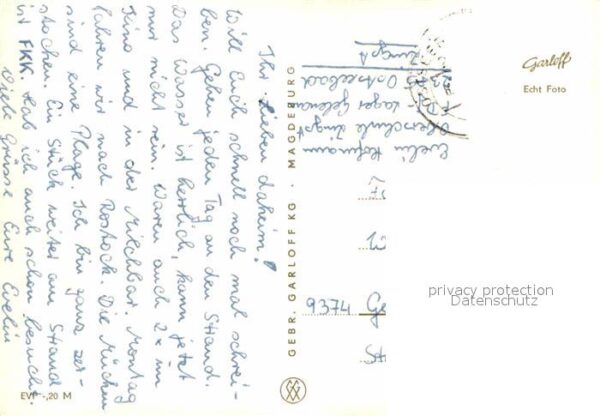 Ihr Lieben daheim!
Will Euch schnell noch mal schrei-
ben. Gehen jeden Tag an den Strand.
Das Wasser ist herrlich, kann jetzt
nur nicht rein. Waren auch 2x im
Kino und in der Milchbar. Montag
fahren wir nach Rostock. Die Mücken
sind eine Plage. Ich bin ganz zer-
stochen. Ein Stück weiter am Strand
ist FKK. Hab ich auch schon besucht.
Viele Grüsse Eure Evelin
EVP -,20 M
GEBR. GARLOFF KG · MAGDEBURG
Evelin Hofmann
Oberschule Zingst
Ostseebad
Zingst
Garloff
Echt Foto
9374 Ge
privacy protection
Datenschutz